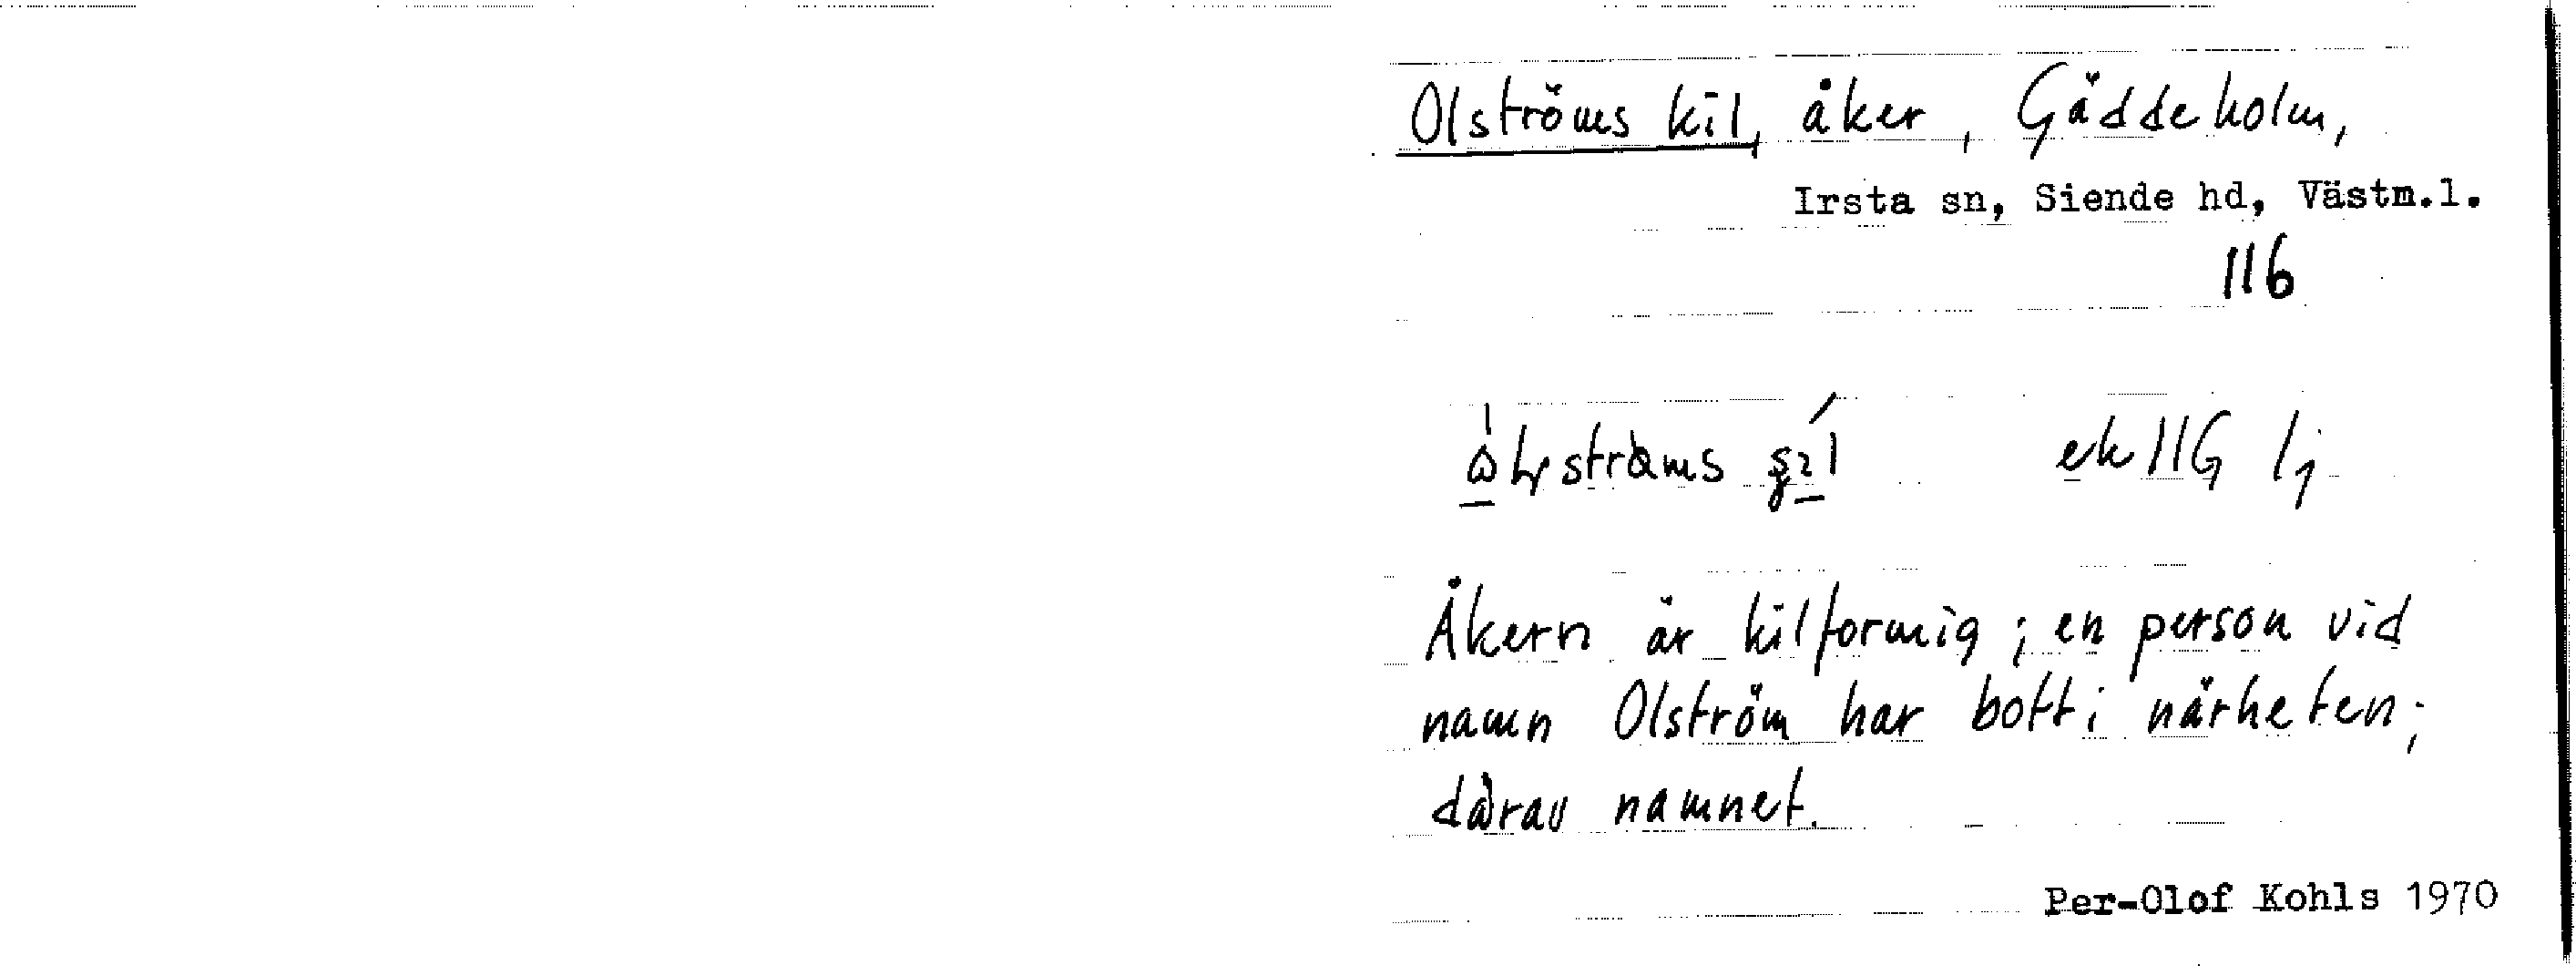 Olströms kil, åker, Gäddeholm,
Irsta sn, Siende hd, Västm.l.
116
ek 11G 1j
Åkern är kilformig; en person vid
namn Olström har bott i närheten;
därav namnet.
Per-Olof Kohls 1970